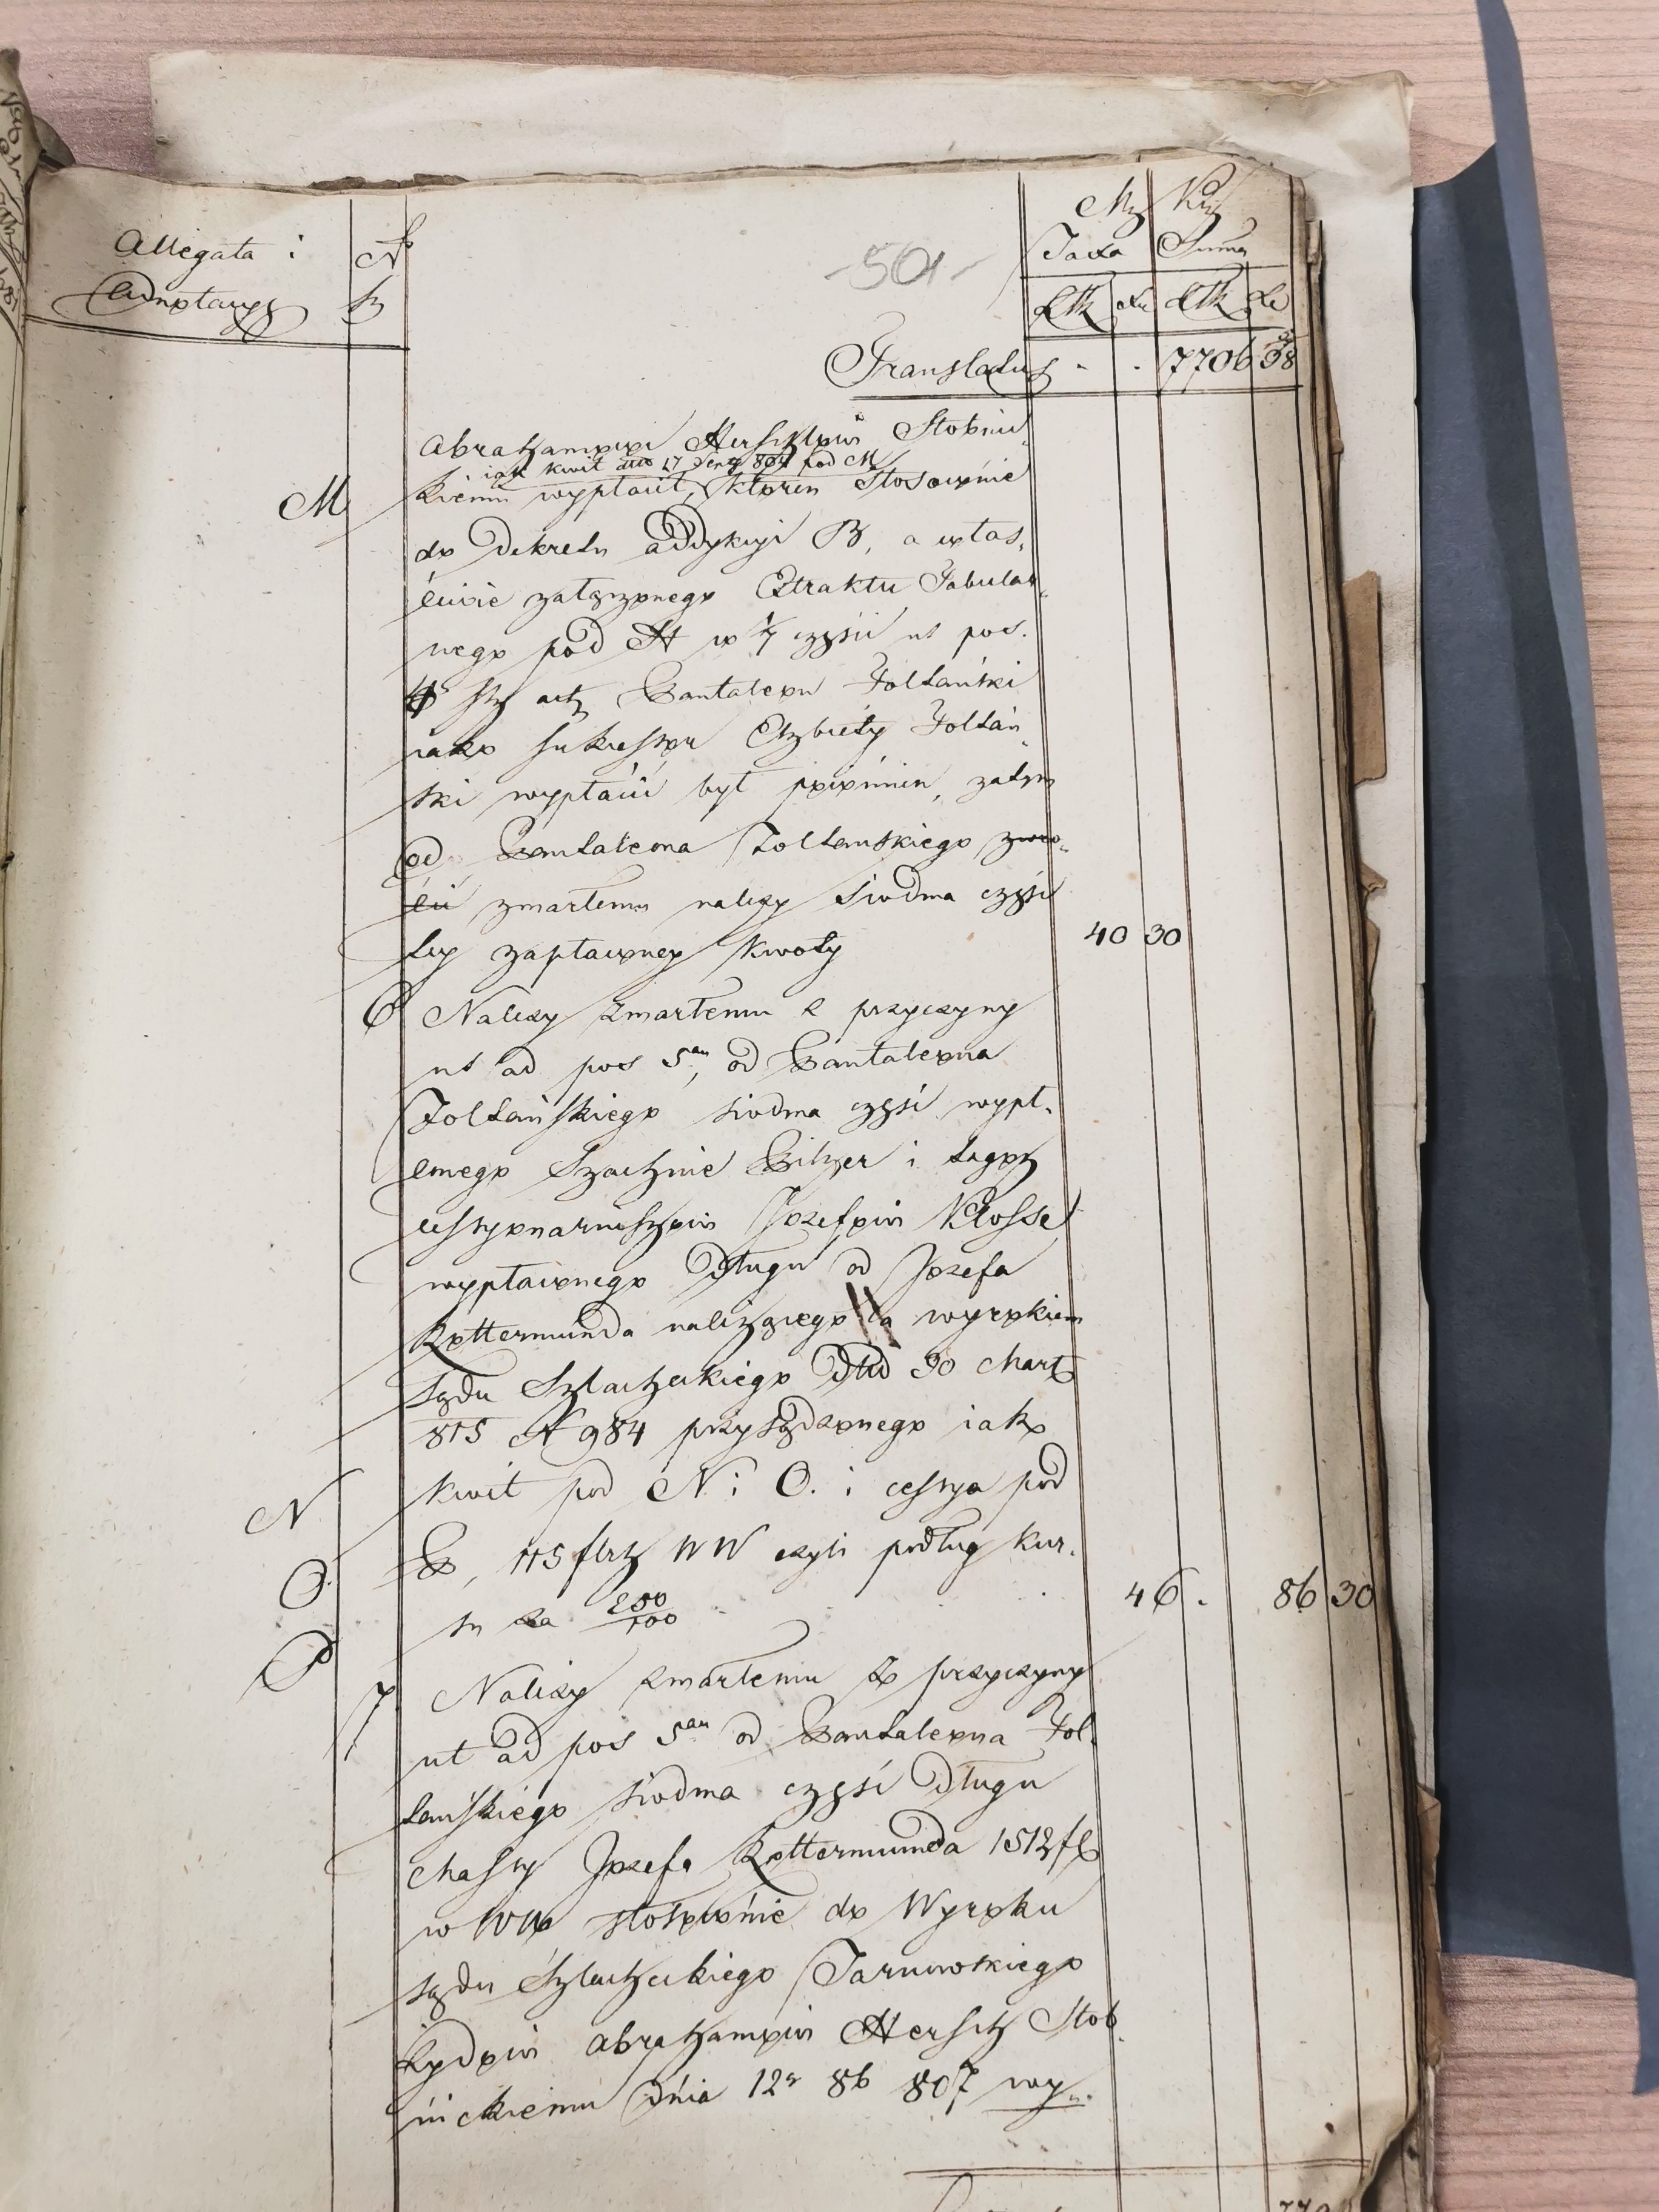 Allegata i
Adnotacye
N
-501-
Taxa Summa
Translatus - . 7706 38
Abrahamowi Herszkowi Stobnic
iak kwit 17 804 pod M
M
kiemu wypłacił, ktoren Stosownie
do Dekretu addykcyi B, a włas,
ciwie załączonego Extraktu Tabular
nego pod H w 1/7 części ut pos.
Pantaleon Zoltański
iako sukcessor Elzbiety Zoltań
ski wypłacić był powinien, zatym
od Pantaleona Zoltanskiego zwro
cić zmarłemu należy siodma część
tey zapłaconey kwoty 40 30
6 Należy zmarłemu z przyczyny
ut ad pos 5am, od Pantaleona
Zoltańskiego siodma część wypł.
conego Szachnie i tegoż
cessyonariuszowi Jozefowi Klosse
wypłaconego Długu od Jozefa
Rottermunda należącego a wyrokiem
Sądu Szlacheckiego 30 Mart
815 N 984 przysądzonego iako
N
kwit pod N i O. i cessya pod
O.
P, 115 flrh WW czyli podług kur.
su za 250/100 46 . 86 30
P
7 Należy zmarłemu z przyczyny
ut ad pos 5am od Pantaleona Zol
tańskiego siodma część Długu
Massy Jozefa Rottermunda 1512 fl
w WW stosownie do Wyroku
sądu Szlacheckiego Tarnowskiego
Żydowi Abrahamowi Hersch Stob
nickiemu dnia 12 8b 807 wy